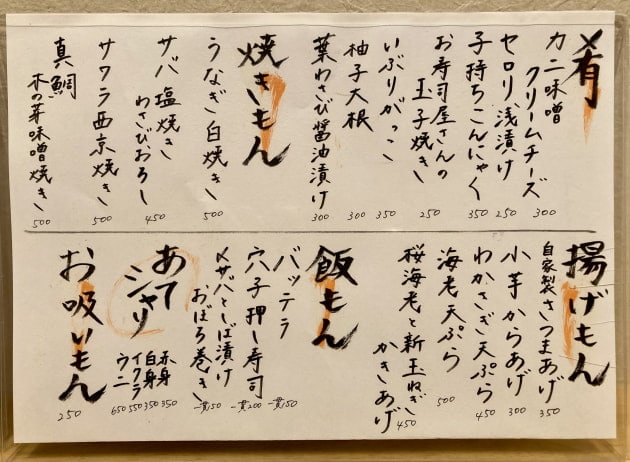 肴
カニ味噌
クリームチーズ
300
セロリ浅漬け
250
子持ちこんにゃく
350
お寿司屋さんの
玉子焼き
250
いぶりがっこ
350
柚子大根
300
葉わさび醤油漬け
300
焼きもん
うなぎ白焼き
500
サバ塩焼き
わさびおろし
450
サワラ西京焼き
500
真鯛
木の芽味噌焼き
500
揚げもん
自家製さつまあげ
350
小芋からあげ
300
わかさぎ天ぷら
450
海老天ぷら
500
桜海老と新玉ねぎ
かきあげ
450
飯もん
バッテラ
一貫150
穴子押し寿司
一貫200
〆サバとしば漬け
おぼろ巻き
一貫150
あて
シャリ
赤身
350
白身
350
イクラ
550
ウニ
650
お吸いもん
250